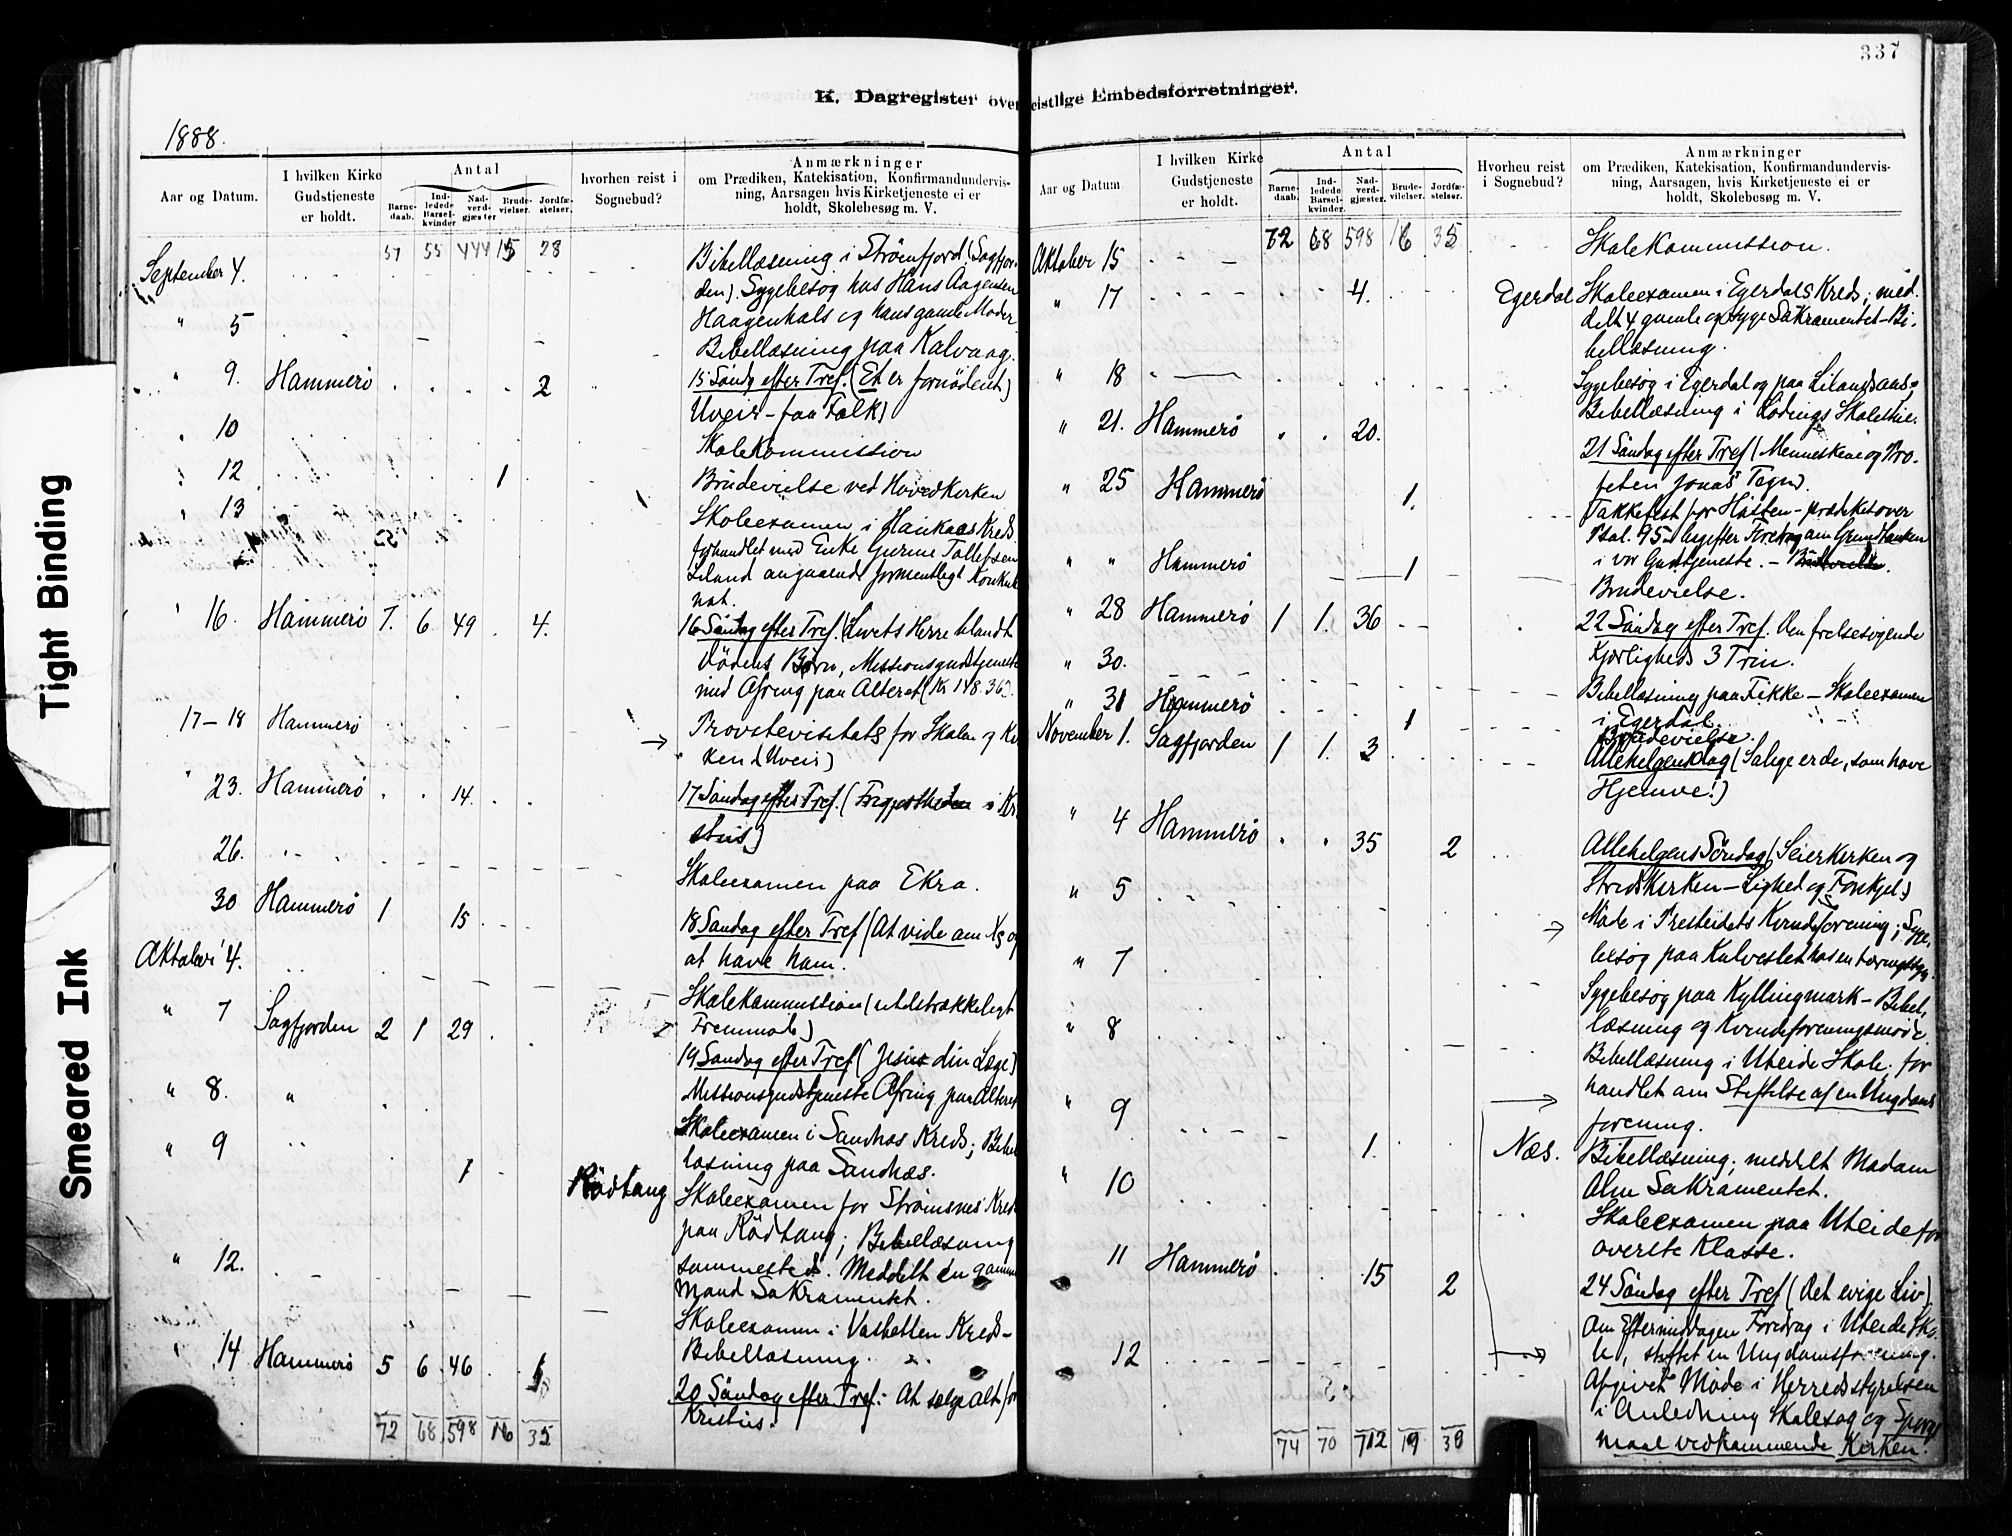 337
K. Dagregister over
eistlige Embedsforretninger.
1888.
Aar og Datum.
I hvilken Kirke
Gudstjeneste
er holdt.
Antal
Barne-
daab.
Ind-
ledede
Barsel-
kvinder
Nad-
verd-
gjæster
Brude-
vielser.
Jordfæ-
stelser.
hvorhen reist i
Sognebud?
Anmærkninger
om Prædiken, Katekisation, Konfirmandundervis-
ning, Aarsagen hvis Kirketjeneste ei er
holdt, Skolebesøg m. V.
57 55 444 15 28
September 4. Bibellæsning i Strömfjord (Sagfjor-
den). Sygebesøg hos Hans Aagensen
Haagenhals og hans gamle Moder
" 5 Bibellæsning paa Kalvaag.
" 9. Hammerö 2 15 Söndg efter Tref. (Et er fornödent)
Uveir - faa Folk)
" 10 Skolekommission
" 12 1 Brudevielse ved Hovedkirken
" 13 Skoleexamen i Haukaas Kreds
forhandlet med Enke Gurine Tollefsen
angaaende formentligt Konkubi
nat.
" 16. Hammerö 7. 6 49 4. 16 Söndag efter Tref. (Livets Herre blandt
Dödens Börn, Missionsgudstjeneste
med Ofring paa Alteret (Kr 148.36).
17-18 Hammerö Provstevisitats for Skolen og Kir
ken (Uveir)
" 23. Hammerö 14. 17 Söndag efter Tref. (i Kri
stus)
26. Skoleexamen paa Ekra.
30 Hammerö 1 15 18 Söndag efter Tref (At vide om Xs og
at have ham.
Oktober 4. Skolekommission (utilstrækkeligt
Fremmöde)
" 7 Sagfjorden 2 1 29 19 Söndag efter Tref (Jesus din Læge)
Missionsgudstjeneste Ofring paa Alteret
" 8. " Skoleexamen i Sandnæs Kreds; Bibel
læsning paa Sandnæs.
" 9 1 Rödtang Skoleexamen for Strömsnes Kreds
paa Rödtang; Bibellæsning
sammesteds. Meddelt en gammel
Mand Sakramentet.
" 12. Skoleexamen i Vasbotten Kreds-
Bibellæsning.
" 14 Hammerö 5 6 46 1 20 Söndag efter Tref: At sælge alt for
Kristus.
72 68 598 16 35
Aar og Datum
I hvilken Kirke
Gudstjeneste
er holdt.
Antal
Barne-
daab.
Ind-
ledede
Barsel-
kvinder.
Nad-
verd-
gjæster.
Brude-
vilser.
Jordfæ-
stelser.
Hvorheu reist
i Sognebud?
Anmærkninger
om Prædiken, Katekisation, Konfirmandundervis-
ning, Aarsagen, hvis Kirketjeneste ei er
holdt, Skolebesøg m. V.
72 68 598 16 35
Oktober 15 Skolekommission.
" 17 4. Egerdal Skoleexamen i Egerdals Kreds; med.
delt 4 gamle og syge Sakramentet - Bi-
bellæsning.
" 18 Sygebesög i Egerdal og paa
Bibellæsning i Lödings Skolestue.
" 21. Hammerö 20. 21 Söndag efter Tref (Menneskene og Pro-
feten Jonas Tegn).
" 25 Hammerö 1. Takkefest for Hösten - prædiket over
Psal. 95 - derefter Foredrag om Grundtanken
i vor Gudstjeneste. - Brudevielse.
" " Hammerö 1 Brudevielse.
" 28 Hammerö 1 1. 36 22 Söndag efter Tref. Den frelsesögende
Kjærligheds 3 Trin.
" 30. Bibellæsning paa Fikke - Skoleexamen
i Egerdal.
" 31 Hammerö 1 Brudevielse.
November 1. Sagfjorden 1 1. 3 Allehelgensdag (Salige er de, som have
Hjemve!)
" 4 Hammerö 35 2 Allehelgens Söndag (Seierkirken og
Stridskirken - Lighed og Forskjel)
" 5 Möde i Presteidets Kvindeforening; Syge-
besög paa Kalveslet hos en
" 7 Sygebesög paa Kyllingmark - Bibel-
læsning og Kvindeforeningsmöde.
" 8 Bibellæsning i Uteide Skole; for
handlet om Stiftelse af en Ungdoms
forening.
" 9 1. Næs. Bibellæsning; meddelt Madam
Alm Sakramentet.
" 10 Skoleexamen paa Uteide for
överste Klasse.
11 Hammerö 15 2 24 Söndag efter Tref (Det evige Liv)
Om Eftermiddagen Foredrag i Uteide Sko-
le, stiftet en Ungdomsforening.
12 Afgivet Möde i Herredsstyrelsen
i Anledning Skolesag og Spörgs
maal vedkommende Kirken.
74 70 712 19 38
Tight Binding
Smeared Ink